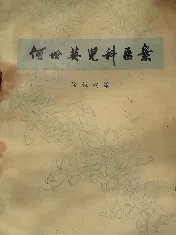 何世英兒科医案